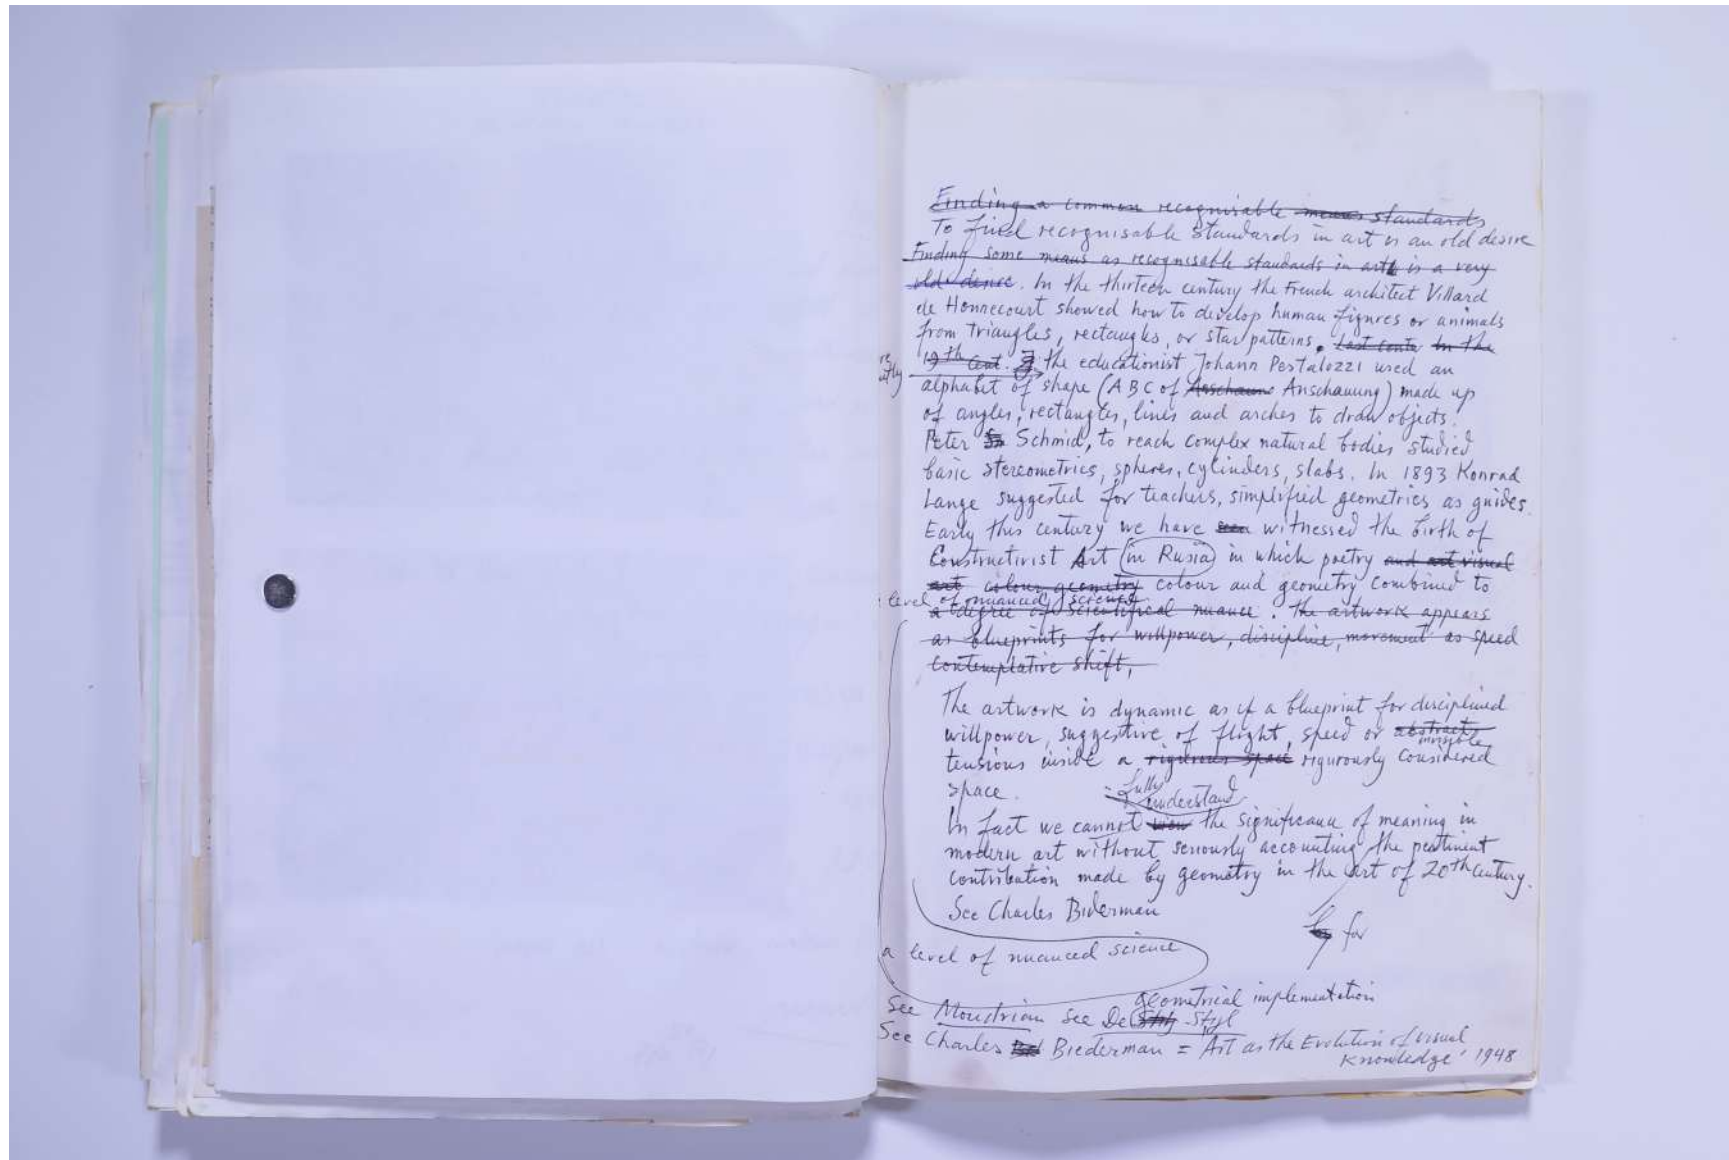 Finding a common recognisable means standards
To find recognisable standards in art is an old desire
Finding some means as recognisable standards in art is a very
old desire. In the thirteen century the French architect Villard
de Honnecourt showed how to develop human figures or animals
from triangles, rectangles, or star patterns. Last cent In the
19th Cent. the educationist Johann Pestalozzi used an
alphabet of shape (ABC of Anschauung) made up
of angles, rectangles, lines and arches to draw objects.
Peter Schmid, to reach complex natural bodies studied
basic stereometrics, spheres, cylinders, slabs. In 1893 Konrad
Lange suggested for teachers, simplified geometries as guides.
Early this century we have seen witnessed the birth of
Constructivist Art (in Rusia) in which poetry and art visual
art colour geometry colour and geometry combined to
level of nuanced science
a degree of scientifical nuance. The artwork appears
as blueprints for willpower, discipline, movement as speed
contemplative shift,
The artwork is dynamic as if a blueprint for disciplined
willpower, suggestive of flight, speed or abstract
invisible
tensions inside a rigurous space rigurously considered
space.
fully
understand
In fact we cannot the significance of meaning in
modern art without seriously accounting the pertinent
contribution made by geometry in the art of 20th Century.
See Charles Biderman
by for
a level of nuanced science
geometrical implementation
See Mondrian See De Styl
See Charles Biederman = Art as the Evolution of visual
Knowledge' 1948